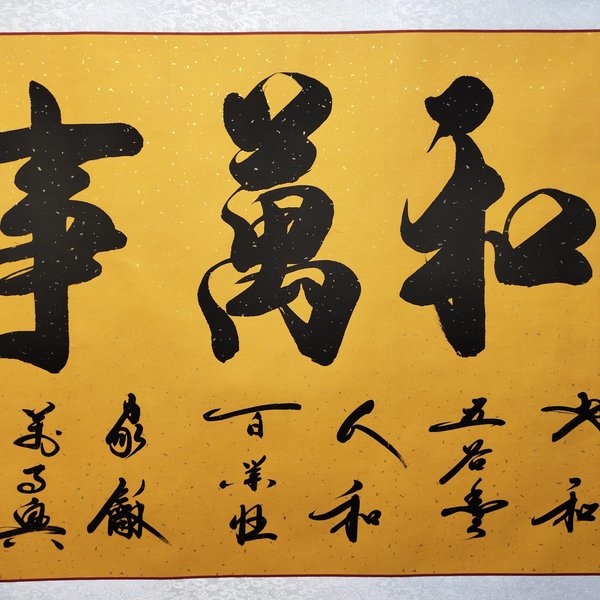 和萬事
和
五谷豐
人和
百業旺
家龢
萬事興